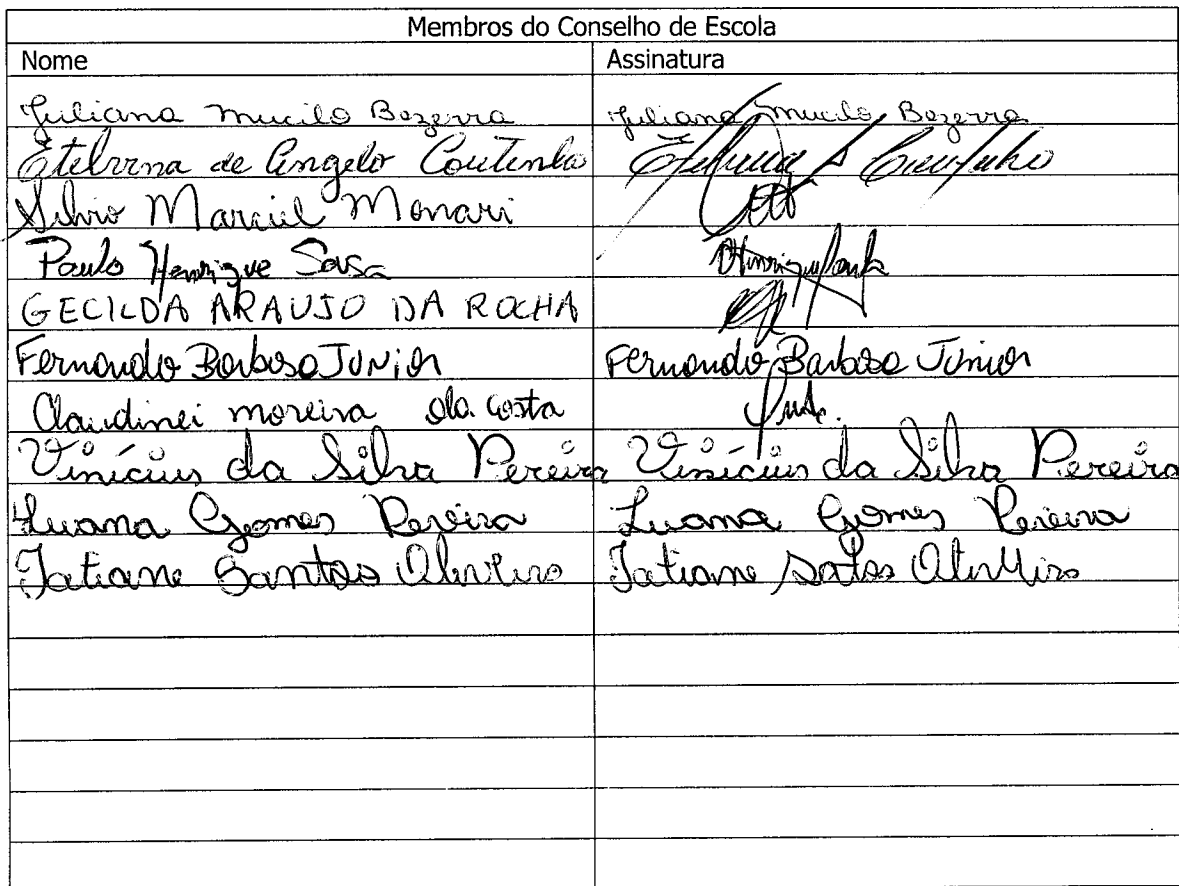 Membros do Conselho de Escola
Nome Assinatura
Juliana Mucilo Bezerra Juliana Mucilo Bezerra
Etelvina de Angelo Coutinho Etelvina Coutinho
Silvio Marciel Monari
Paulo Henrique Sousa Henrique Paulo
GECILDA ARAUJO DA ROCHA
Fernando Barbosa JUNior Fernando Barbosa Junior
Claudinei moreira da Costa
Vinícius da Silva Pereira Vinícius da Silva Pereira
Luana Gomes Pereira Luana Gomes Pereira
Tatiane Santos Tatiane